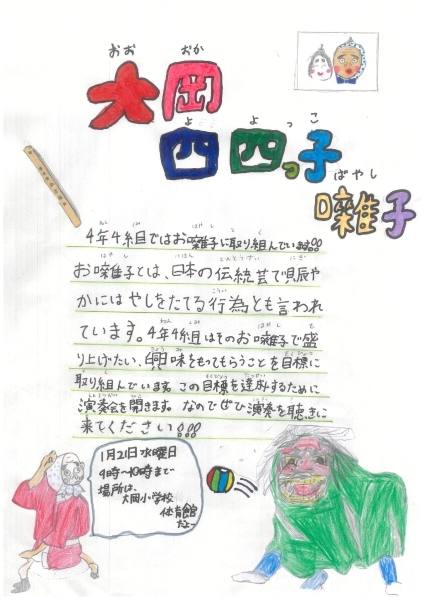 おお おか
大岡
よ よっこ
四四っ子
ばやし
囃子
4年4組ではお囃子に取り組んでいます!!!
お囃子とは、日本の伝統芸で賑や
かにはやしをたてる行為とも言われ
ています。4年4組はそのお囃子で盛
り上げたい、興味をもってもらうことを目標に
取り組んでいます。この目標を達成するために
演奏会を開きます。なのでぜひ演奏を聴きに
来てください!!!
1月21日水曜日
9時〜10時まで
場所は、
大岡小学校
体育館
だよー